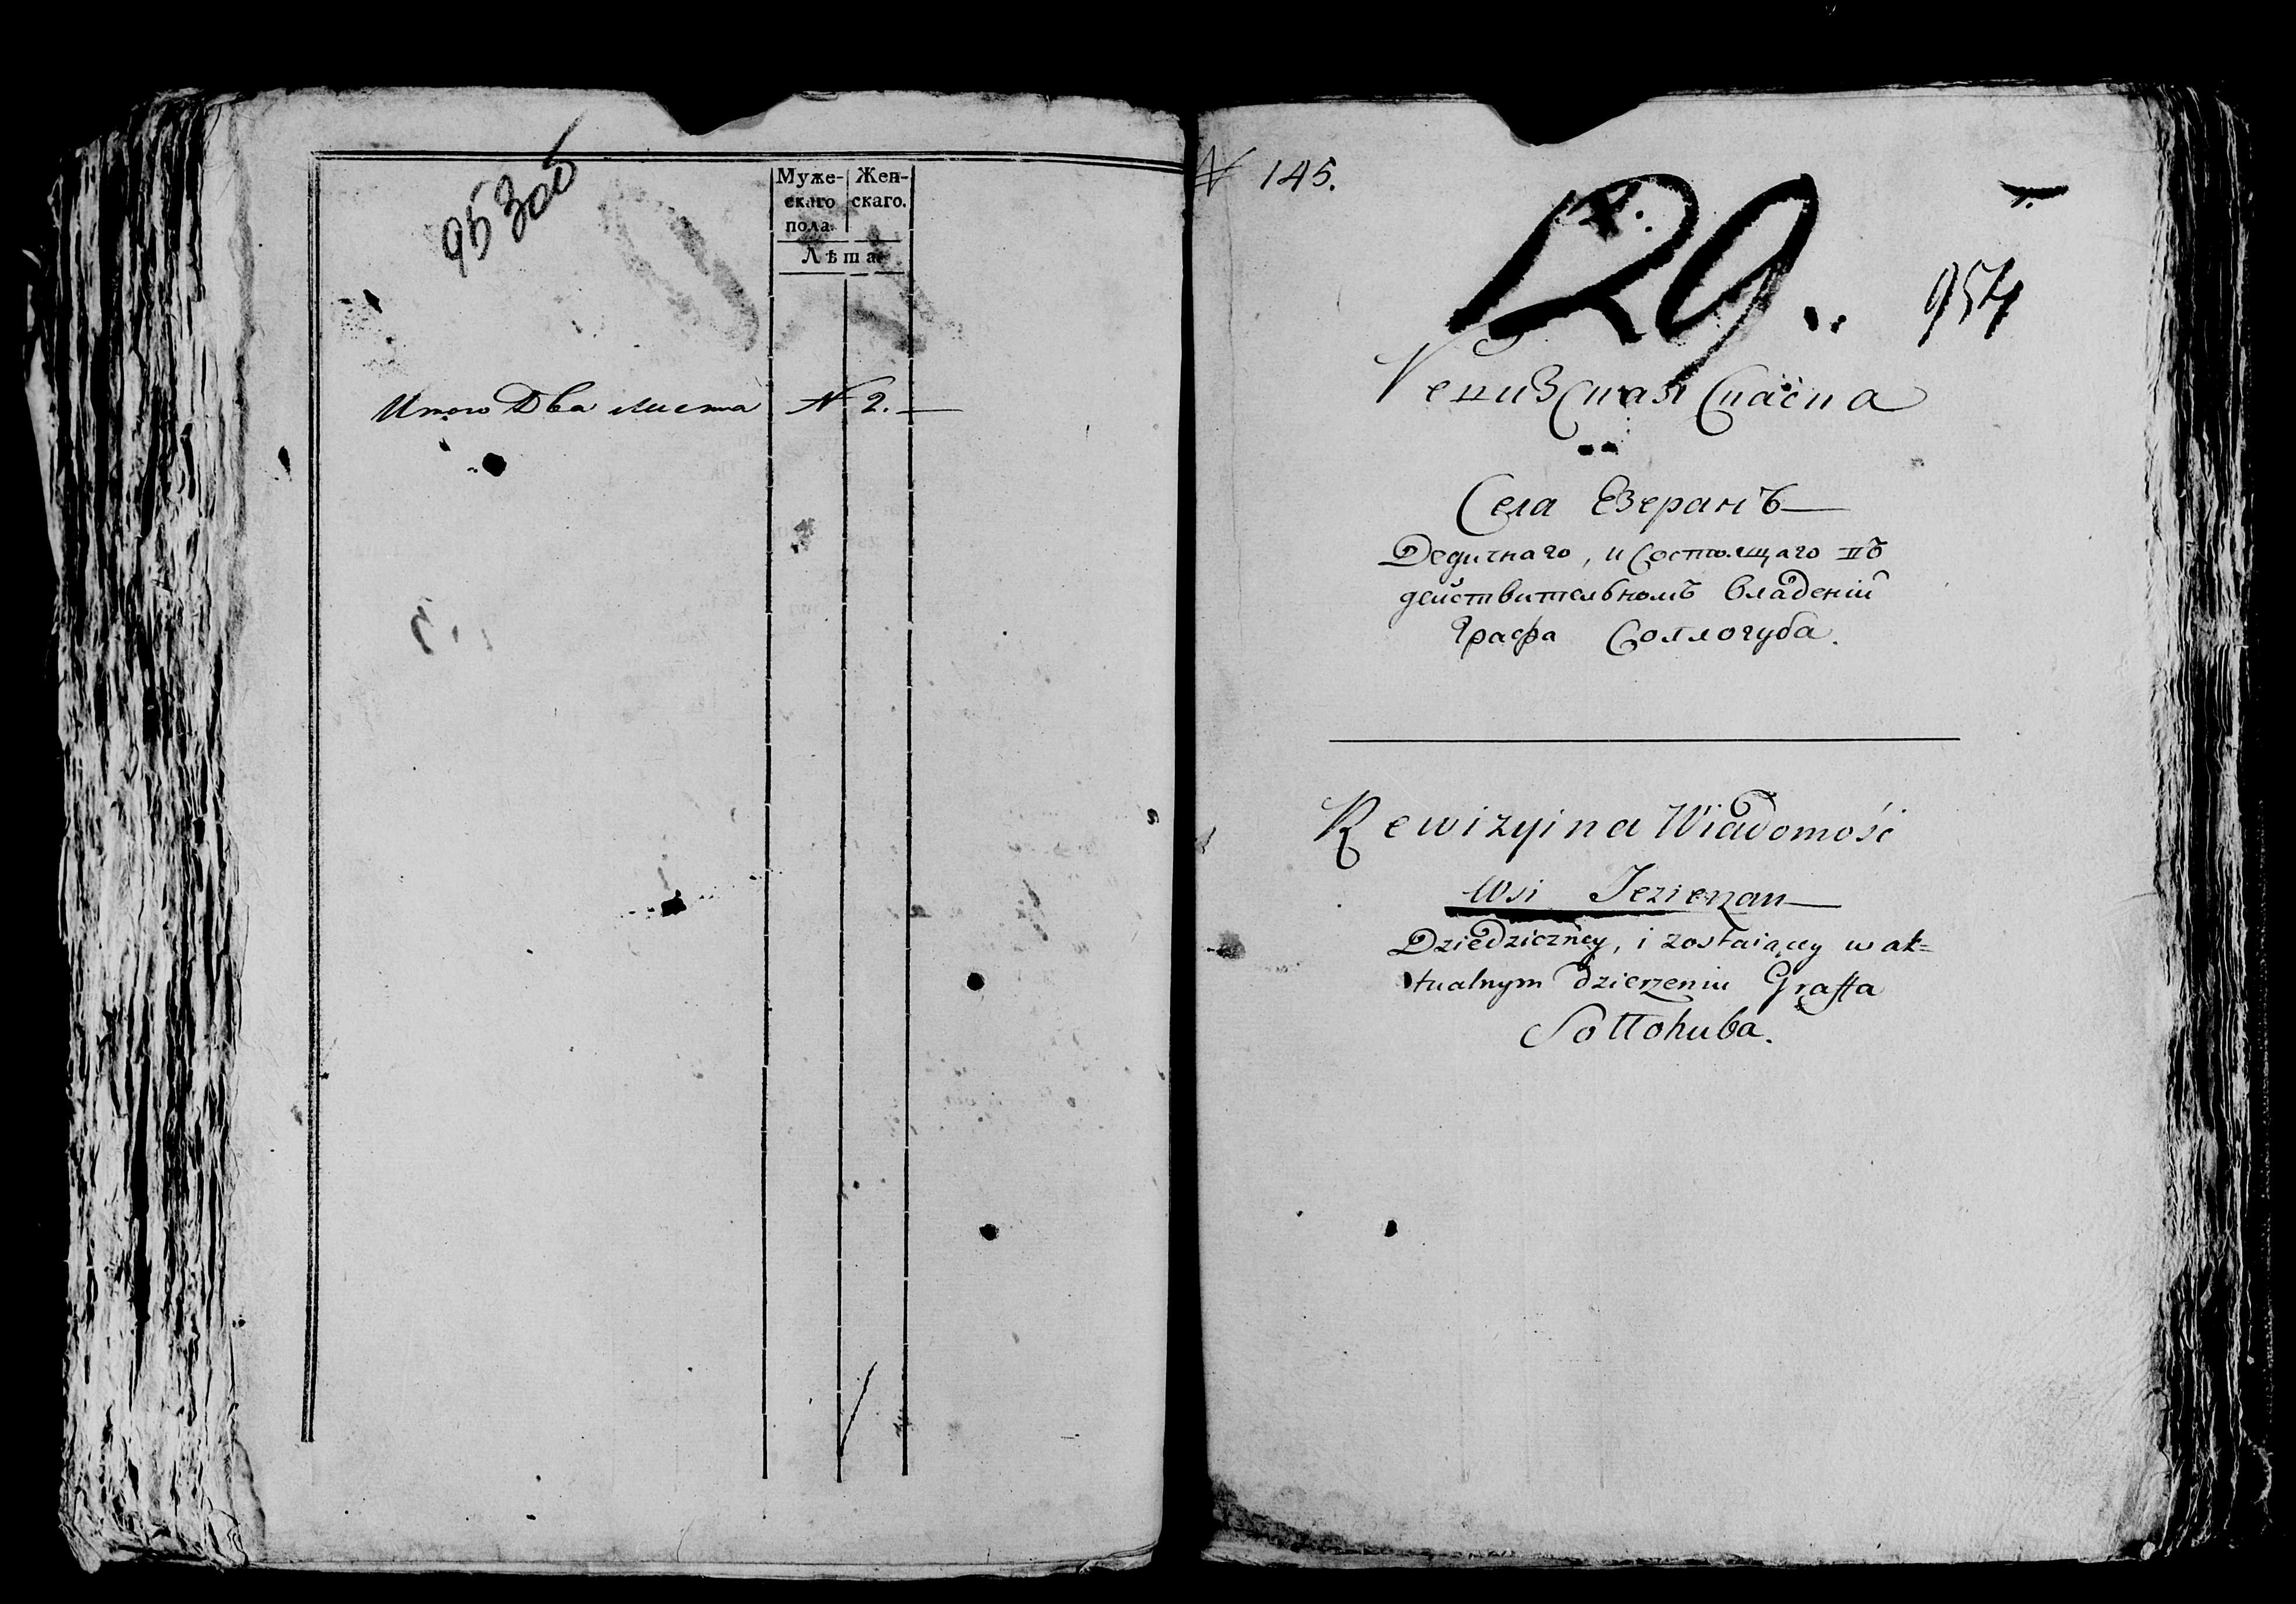 953об
Муже-
скаго
пола.
Жен-
скаго.
Лѣта
Итого Два листа № 2.
№ 145.
129.
954
Ревизская Сказка
Села Езеранъ
Дедичнаго, и Состоящаго въ
действительномъ владении
Графа Соллогуба.
Rewizyina Wiadomość
Wsi Jezierzan
Dziedziczney, i zostaiącey w ak=
tualnym dzierzeniu Graffa
Sollohuba.